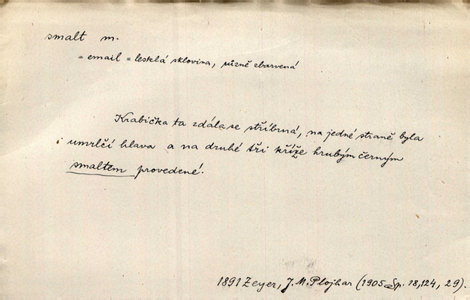 smalt m.
= email = lesklá sklovina, různě zbarvená
Krabička ta zdála se stříbrná, na jedné straně byla
i umrlčí hlava a na druhé tři kříže hrubým černým
smaltem provedené.
1891 Zeyer, J. M. Plojhar (1905 Sp. 18, 124, 29).